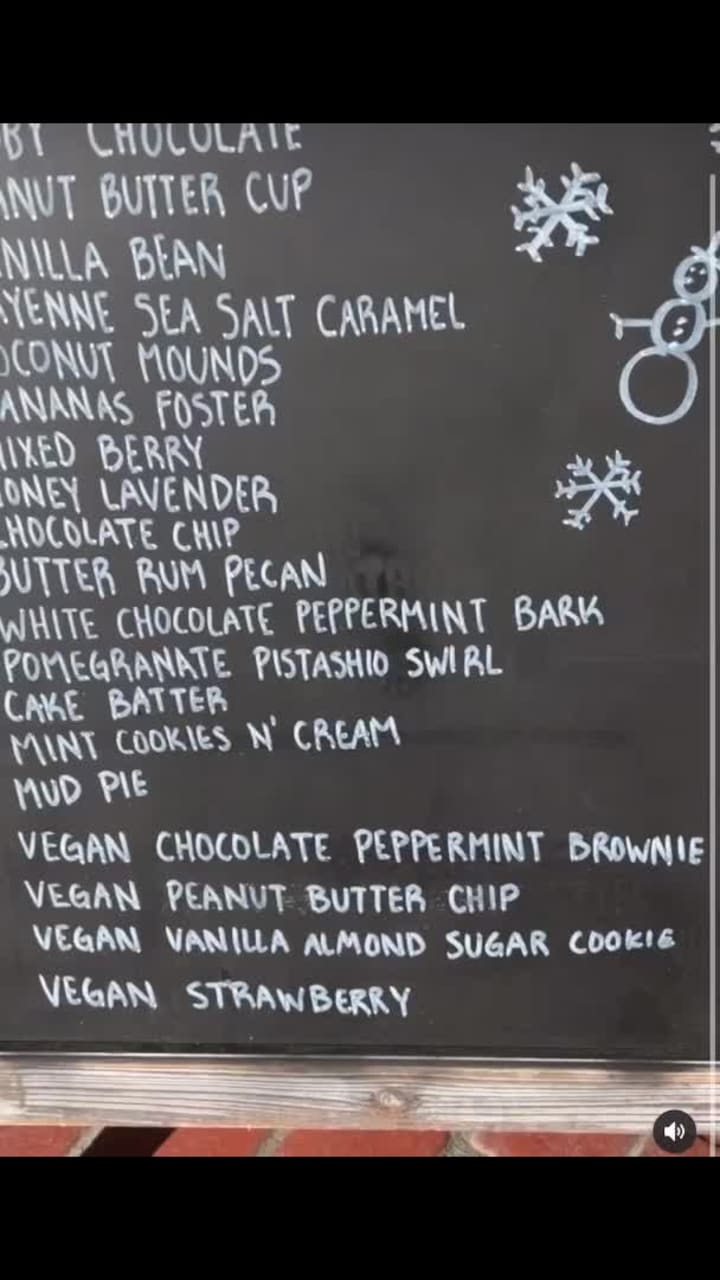 CHOCOLATE
BUTTER CUP
BEAN
SEA SALT CARAMEL
MOUNDS
FOSTER
BERRY
LAVENDER
CHIP
BUTTER RUM PECAN
WHITE CHOCOLATE PEPPERMINT BARK
POMEGRANATE PISTASHIO SWIRL
CAKE BATTER
MINT COOKIES N' CREAM
MUD PIE
VEGAN CHOCOLATE PEPPERMINT BROWNIE
VEGAN PEANUT BUTTER CHIP
VEGAN VANILLA ALMOND SUGAR COOKIE
VEGAN STRAWBERRY